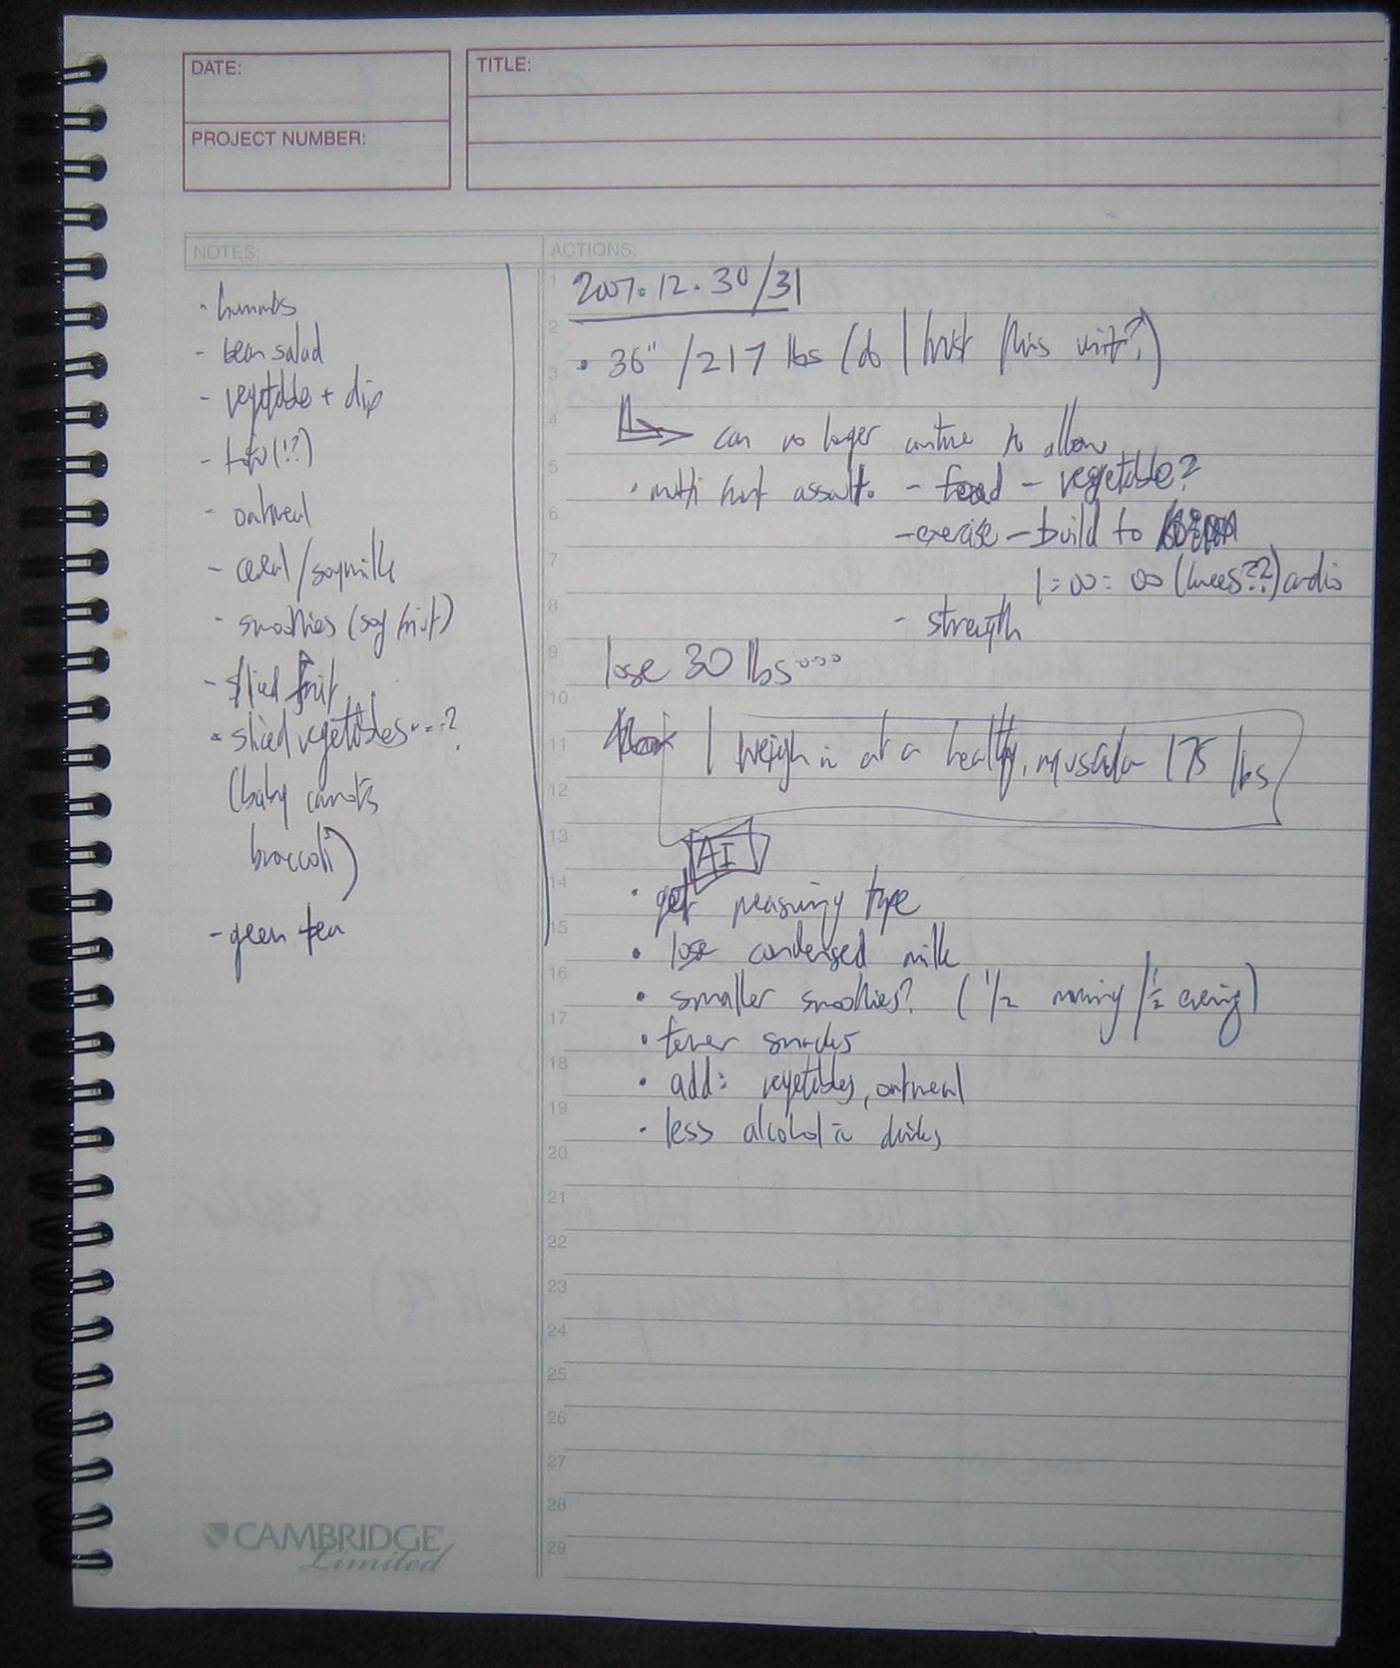 DATE:
TITLE:
PROJECT NUMBER:
NOTES:
- hummus
- bean salad
- vegetable + dip
- tofu (!?)
- oatmeal
- cereal/soymilk
- smoothies (soy/fruit)
- sliced fruit
- sliced vegetables ---?
(baby carrots
broccoli)
- green tea
ACTIONS:
2007.12.30/31
• 36" /217 lbs (do I trust this unit?)
can no longer continue to allow
• multi front assault. - food - vegetable?
- exercise - build to
1:00 = 00 (knees??) cardio
- strength
lose 30 lbs...
I weigh in at a healthy, muscular 175 lbs
AI
• get measuring tape
• lose condensed milk
• smaller smoothies? (1/2 morning / 1/2 evening)
• fewer snacks
• add: vegetables, oatmeal
• less alcoholic drinks
1
2
3
4
5
6
7
8
9
10
11
12
13
14
15
16
17
18
19
20
21
22
23
24
25
26
27
28
29
CAMBRIDGE
Limited